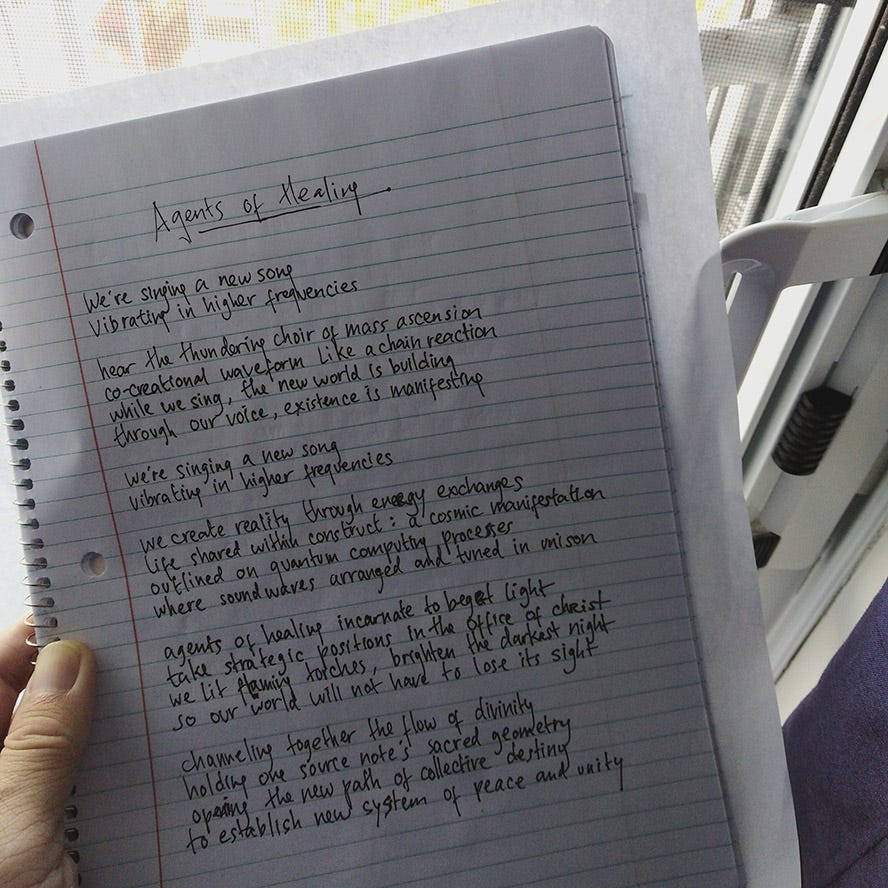 Agents of Healing.
We're singing a new song
Vibrating in higher frequencies
hear the thundering choir of mass ascension
co-creational waveform like a chain reaction
while we sing, the new world is building
through our voice, existence is manifesting
we're singing a new song
vibrating in higher frequencies
we create reality through energy exchanges
life shared within construct: a cosmic manifestation
outlined on quantum computing processes
where soundwaves arranged and tuned in unison
agents of healing incarnate to beget light
take strategic positions in the office of christ
we lit flaming torches, brighten the darkest night
so our world will not have to lose its sight
channeling together the flow of divinity
holding one source note's sacred geometry
opening the new path of collective destiny
to establish new system of peace and unity